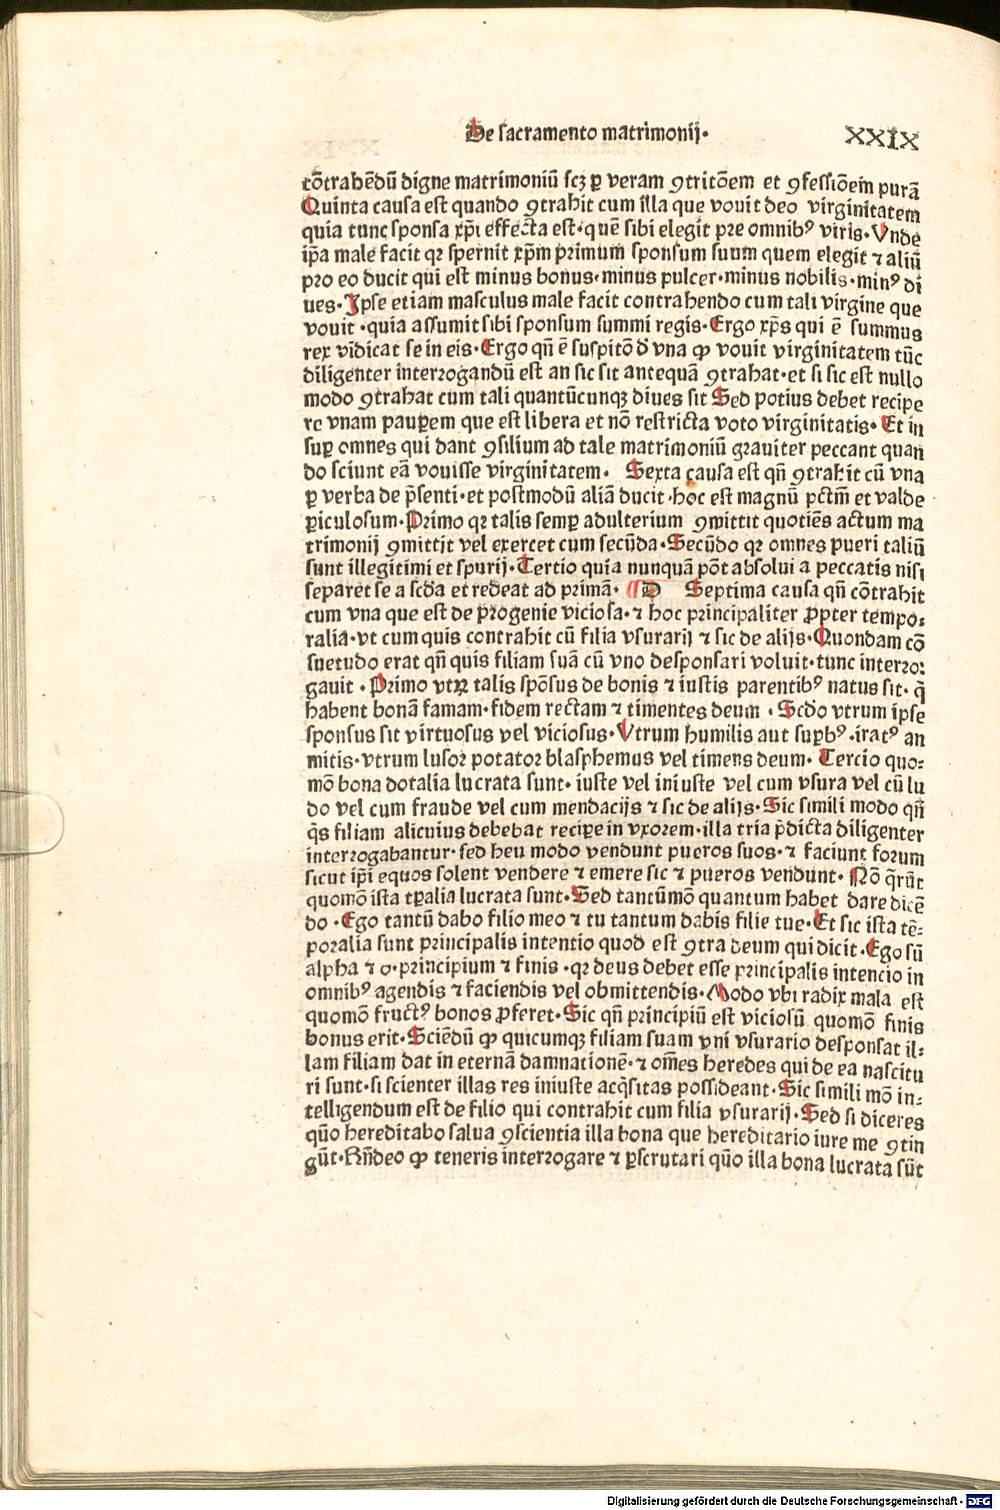 De sacramento matrimonij.
XXIX
cōtrahēdū digne matrimoniū scʒ ꝑ veram ꝯtritōem et ꝯfessiōem purā
Quinta causa est quando ꝯtrahit cum illa que vouit deo virginitatem
quia tunc sponsa xp̄i effecta est·quē sibi elegit pre omnibꝰ viris·Vnde
ip̄a male facit qꝛ spernit xp̄m primum sponsum suum quem elegit ⁊ aliū
pro eo ducit qui est minus bonus·minus pulcer·minus nobilis·minꝰ di
ues·Ipse etiam masculus male facit contrahendo cum tali virgine que
vouit·quia assumit sibi sponsum summi regis·Ergo xp̄s qui ē summus
rex vīdicat se in eis·Ergo qn̄ ē suspitō đ vna ꝙ vouit virginitatem tūc
diligenter interrogandū est an sic sit antequā ꝯtrahat·et si sic est nullo
modo ꝯtrahat cum tali quantūcunqʒ diues sit Sed potius debet recipe
re vnam pauꝑem que est libera et nō restricta voto virginitatis·Et in
suꝑ omnes qui dant ꝯsilium ad tale matrimoniū grauiter peccant quan
do sciunt eā vouisse virginitatem· Sexta causa est qn̄ ꝯtrahit cū vna
ꝑ verba de p̄senti·et postmodū aliā ducit·hoc est magnū pctm̄ et valde
ꝑiculosum·Primo qꝛ talis semꝑ adulterium ꝯmittit quotiēs actum ma
trimonij ꝯmittit vel exercet cum secūda·Secūdo qꝛ omnes pueri taliū
sunt illegitimi et spurij·Tertio quia nunquā pōt absolui a peccatis nisi
separet se a scd̄a et redeat ad primā· ¶D Septima causa qn̄ cōtrahit
cum vna que est de progenie viciosa·⁊ hoc principaliter ꝓpter tempo⸗
ralia·vt cum quis contrahit cū filia vsurarij ⁊ sic de alijs·Quondam cō
suetudo erat qn̄ quis filiam suā cū vno desponsari voluit·tunc interro⸗
gauit·Primo vtꝝ talis spōsus de bonis ⁊ iustis parentibꝰ natus sit·q̄
habent bonā famam·fidem rectam ⁊ timentes deum·Scd̄o vtrum ipse
sponsus sit virtuosus vel viciosus·Vtrum humilis aut suꝑbꝰ·iratꝰ an
mitis·vtrum lusor potator blasphemus vel timens deum·Tercio quo⸗
mō bona dotalia lucrata sunt·iuste vel iniuste vel cum vsura vel cū lu
do vel cum fraude vel cum mendacijs ⁊ sic de alijs·Sic simili modo qn̄
q̄s filiam alicuius debebat reciꝑe in vxorem·illa tria p̄dicta diligenter
interrogabantur·sed heu modo vendunt pueros suos·⁊ faciunt forum
sicut ip̄i equos solent vendere ⁊ emere sic ⁊ pueros vendunt·Nō q̄rūt
quomō ista tꝑalia lucrata sunt·Sed tantūmō quantum habet dare dicē
do·Ego tantū dabo filio meo ⁊ tu tantum dabis filie tue·Et sic ista tē⸗
poralia sunt principalis intentio quod est ꝯtra deum qui dicit·Ego sū
alpha ⁊ o·principium ⁊ finis·qꝛ deus debet esse principalis intencio in
omnibꝰ agendis ⁊ faciendis vel obmittendis·Modo vbi radix mala est
quomō fructꝰ bonos ꝓferet·Sic qn̄ principiū est viciosū quomō finis
bonus erit·Sciēdū ꝙ quicumqʒ filiam suam vni vsurario desponsat il⸗
lam filiam dat in eternā damnationē·⁊ om̄es heredes qui de ea nascitu
ri sunt·si scienter illas res iniuste acq̄sitas possideant·Sic simili mō in⸗
telligendum est de filio qui contrahit cum filia vsurarij·Sed si diceres
quō hereditabo salua ꝯscientia illa bona que hereditario iure me ꝯtin
gūt·Rn̄deo ꝙ teneris interrogare ⁊ ꝑscrutari quō illa bona lucrata sūt
Digitalisierung gefördert durch die Deutsche Forschungsgemeinschaft - DFG